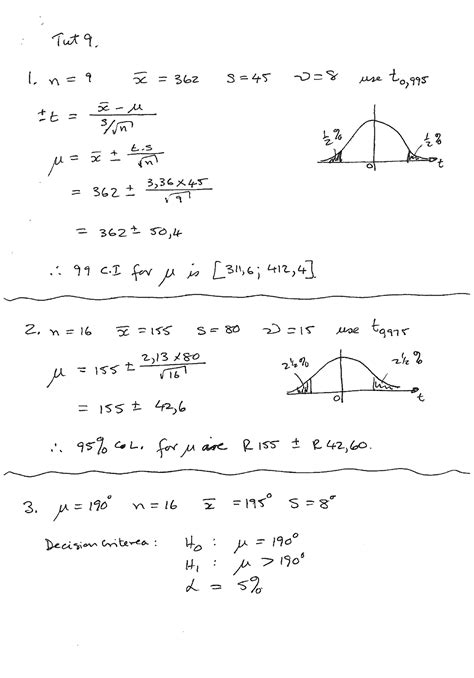 Tut 9.
1. n = 9 x̄ = 362 S = 45 ν = 8 use t0,995
±t = (x̄ − μ) / (s/√n)
½% ½%
0 t
μ = x̄ ± t.s/√n
= 362 ± 3,36 × 45/√9
= 362 ± 50,4
∴ 99 C.I for μ is [311,6 ; 412,4]
2. n = 16 x̄ = 155 S = 80 ν = 15 use t0,975
μ = 155 ± 2,13 × 80/√16
2½% 2½%
0 t
= 155 ± 42,6
∴ 95% Co L. for μ are R155 ± R42,60.
3. μ = 190° n = 16 x̄ = 195° S = 8°
Decision Criterea : H0 : μ = 190°
H1 : μ > 190°
α = 5%